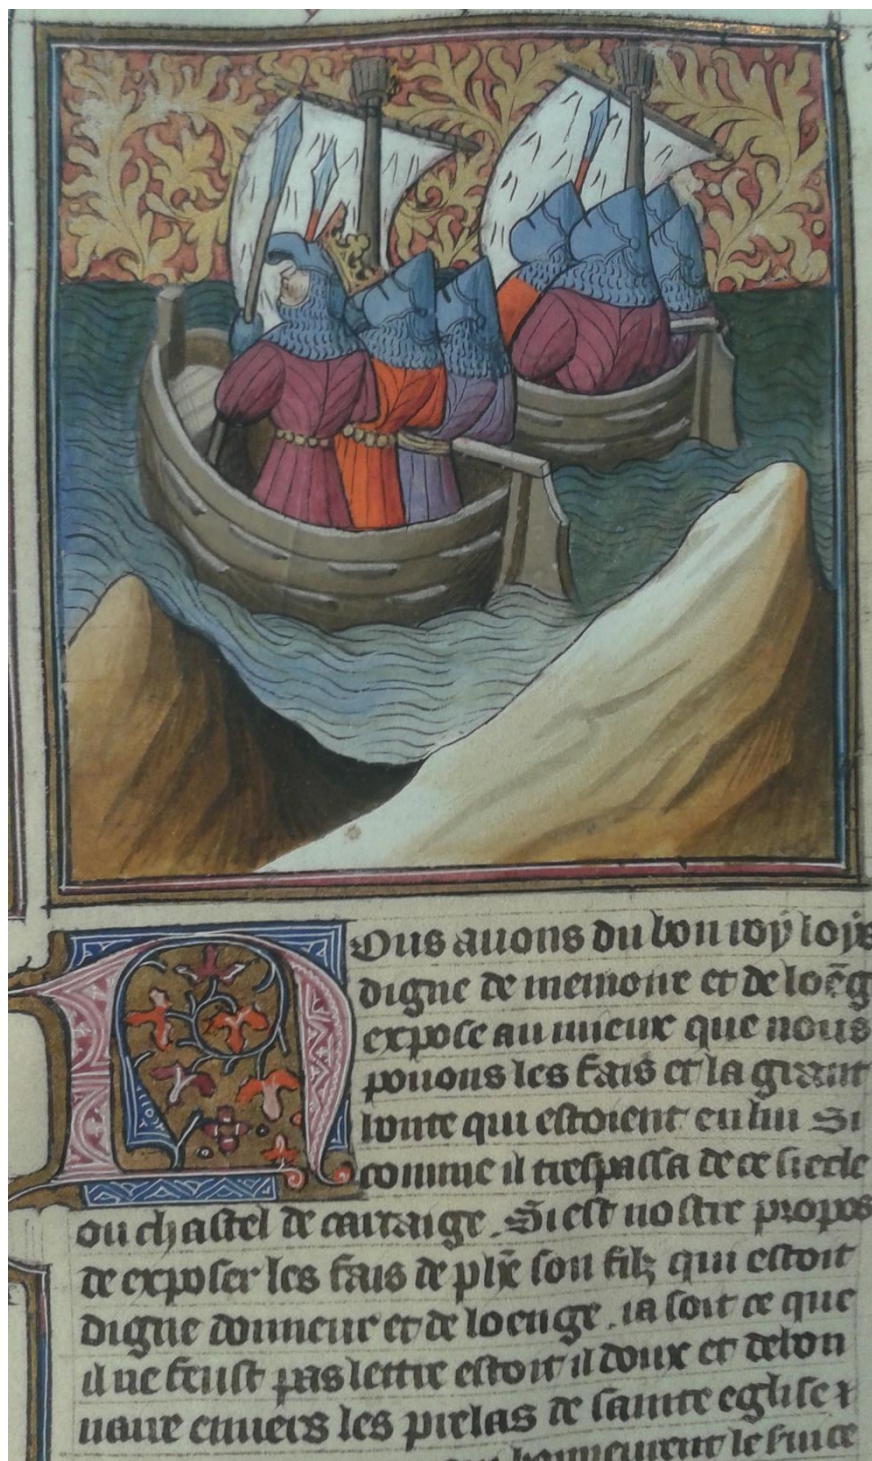 Nous auons du bon roy loÿs
digne de memoire et de loēg
expose au mieux que nous
pouons les fais et la grant
bonte qui estoient en lui Si
comme il trespassa de ce siecle
ou chastel de cartaige. Si est nostre propos
de exposer les fais de phē son filz qui estoit
digne donneur et de loenge. ia soit ce que
il ne feust pas lettre estoit il doux et debon
naire enuers les prelas de sainte eglise